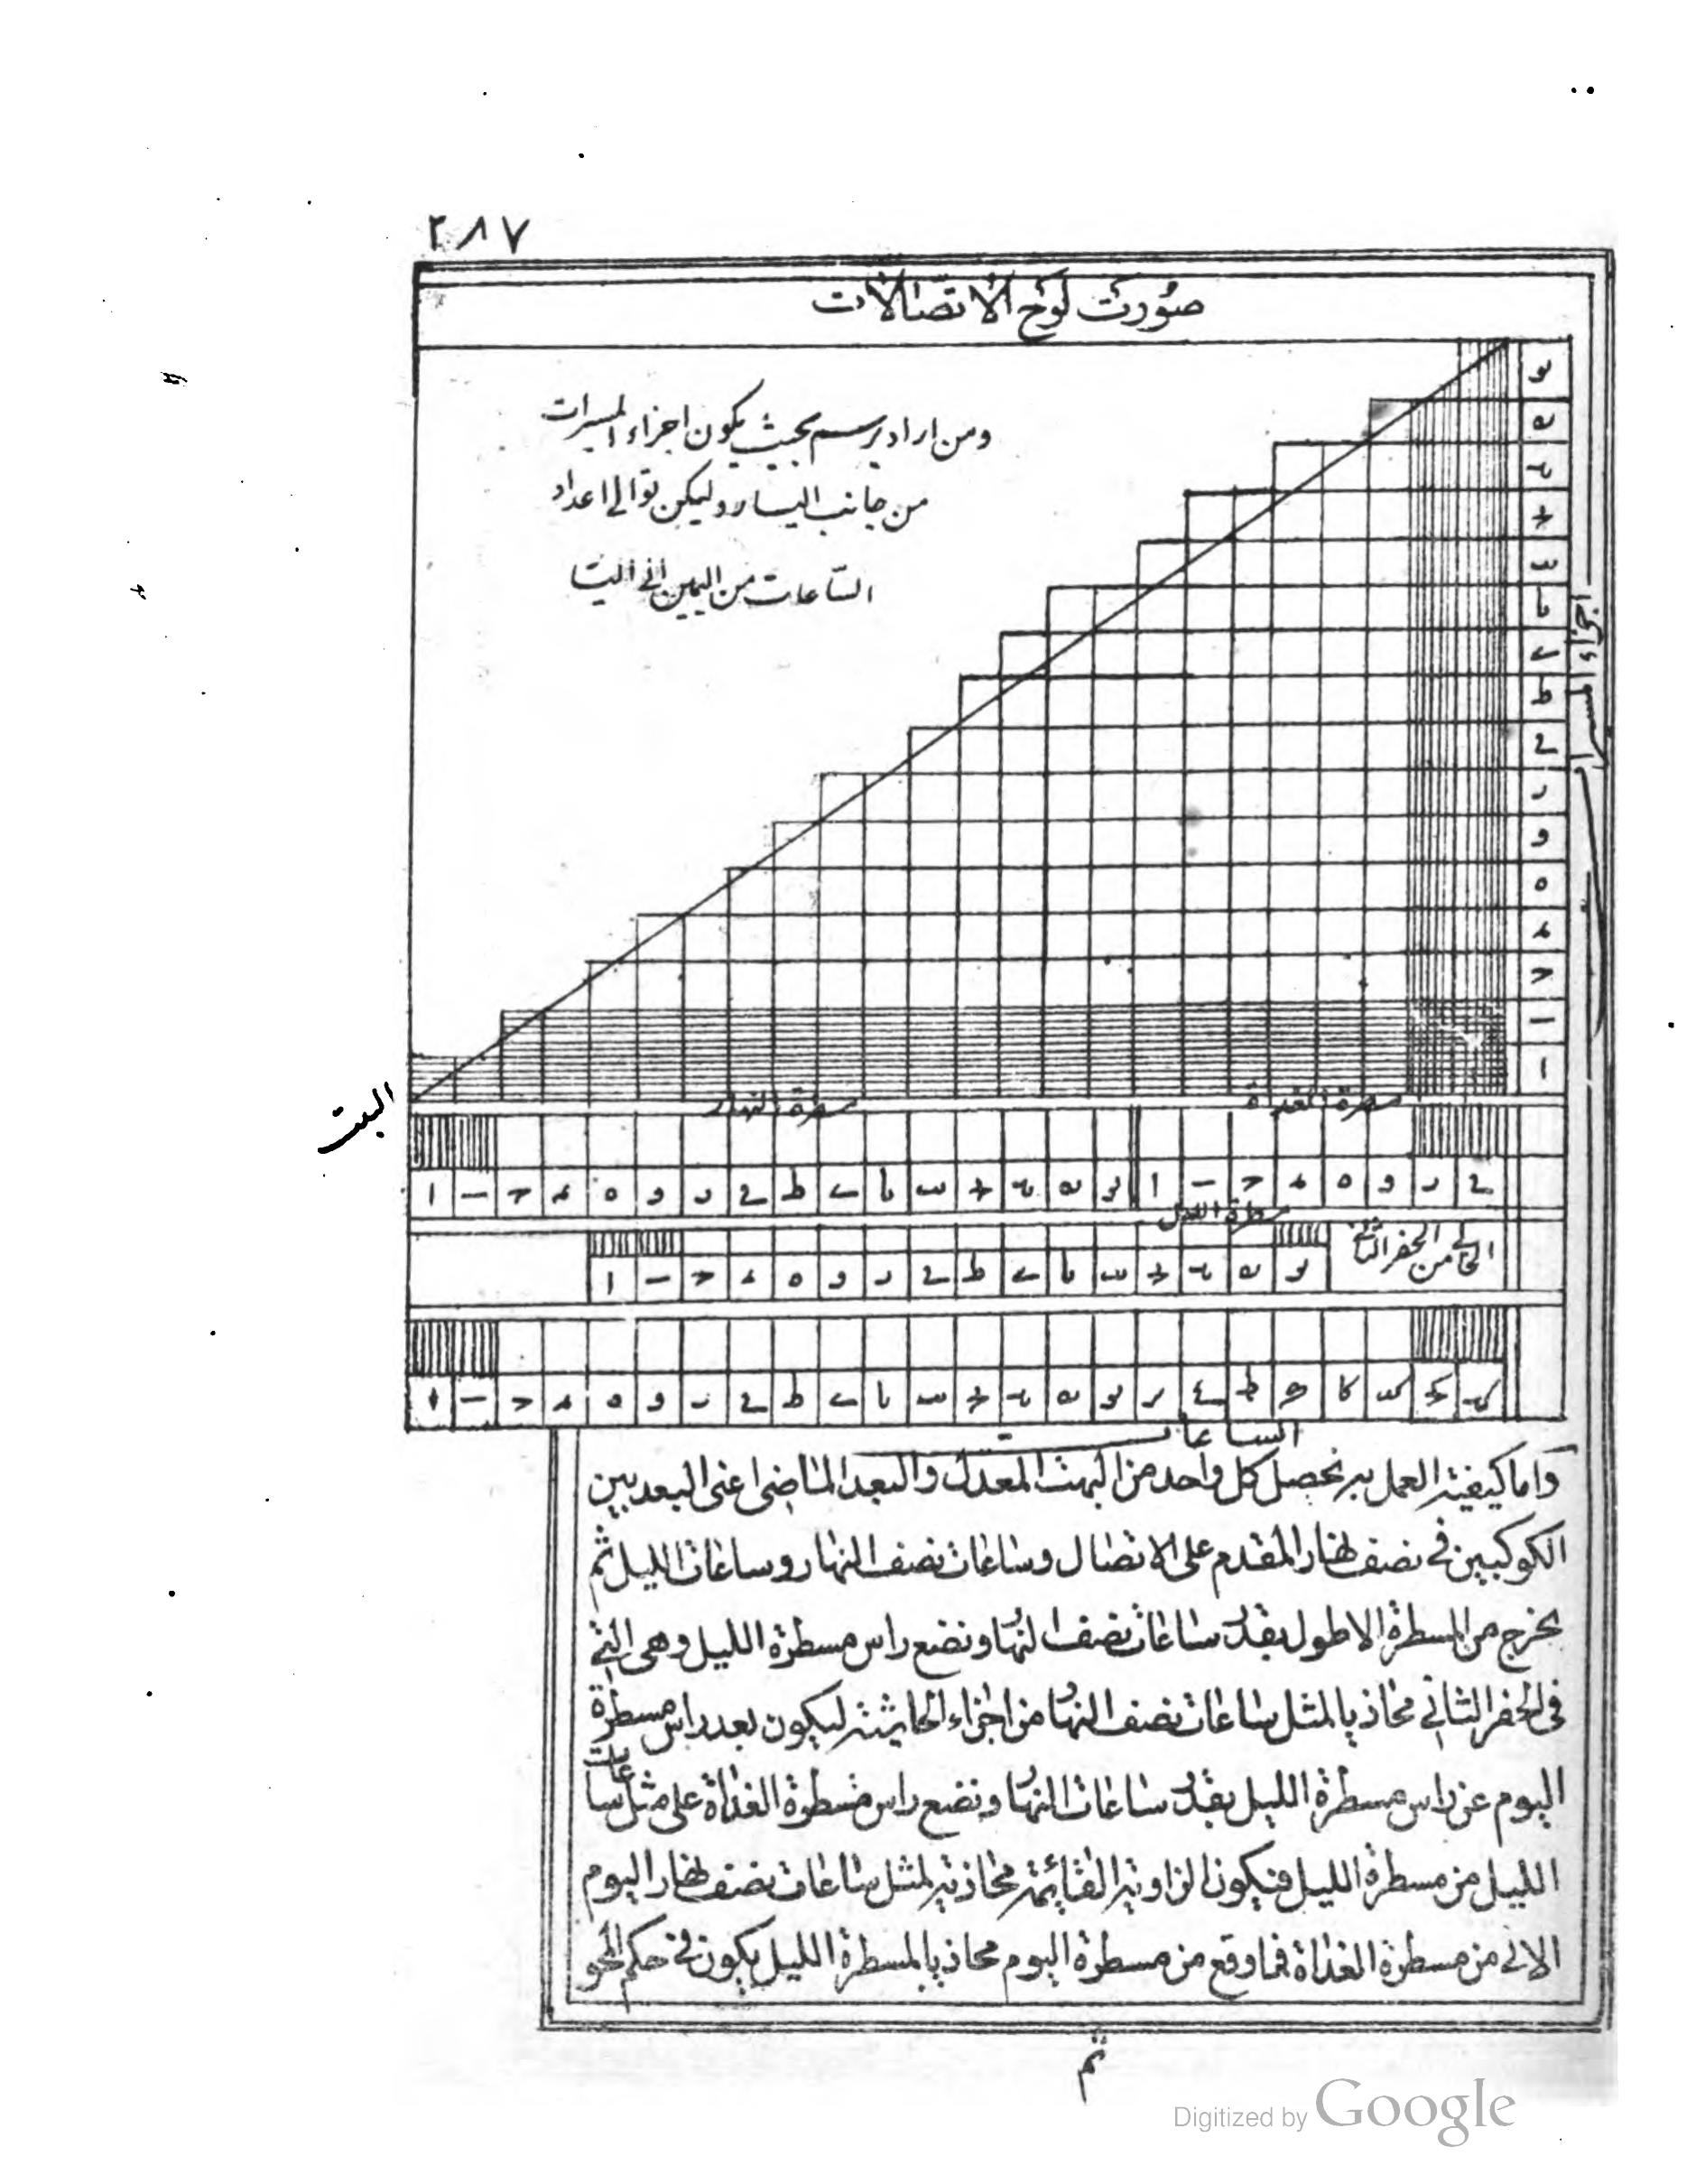 ٢٨٧
صورت لوح الاتصالات
ومن اراد يرسم بحيث يكون اجزاء المسيرات
من جانب اليسار وليكن توالى اعداد
الساعات من اليمين الى اليسا
و
ه
د
ج
ب
يا
ى
ط
ح
ر
و
ه
د
ج
ب
ا
البهت
مسطرة النهار
مسطرة الغداة
ا ب ج د ه و ر ح ط ى يا يب يج يد يه يو ا ب ج د ه و ر ح
مسطرة الليل
الخالى من الحفر الثانى
ا ب ج د ه و ر ح ط ى يا يب يج يد يه يو
ا ب ج د ه و ر ح ط ى يا يب يج يد يه يو ير يح يط ك كا كب كج كد
الساعات
واما كيفية العمل به نحصل كل واحد من البهت المعدل والبعد الماضى اعنى البعد بين
الكوكبين فى نصف نهار المقدم على الاتصال وساعات نصف النهار وساعات الليل ثم
نخرج من المسطرة الاطول بقدر ساعات نصف النهار ونضع راس مسطرة الليل وهى التى
فى الحفر الثانى محاذيا لمثل ساعات نصف النهار من اجزاء الحاشية ليكون بعد راس مسطرة
اليوم عن راس مسطرة الليل بقدر ساعات النهار ونضع راس مسطرة الغداة على مثل ساعات
الليل من مسطرة الليل فيكون الزاوية القائمة محاذية لمثل ساعات نصف نهار اليوم
الاتى من مسطرة الغداة فما وقع من مسطرة اليوم محاذيا لمسطرة الليل يكون فى حكم المحو
ثم
Digitized by Google